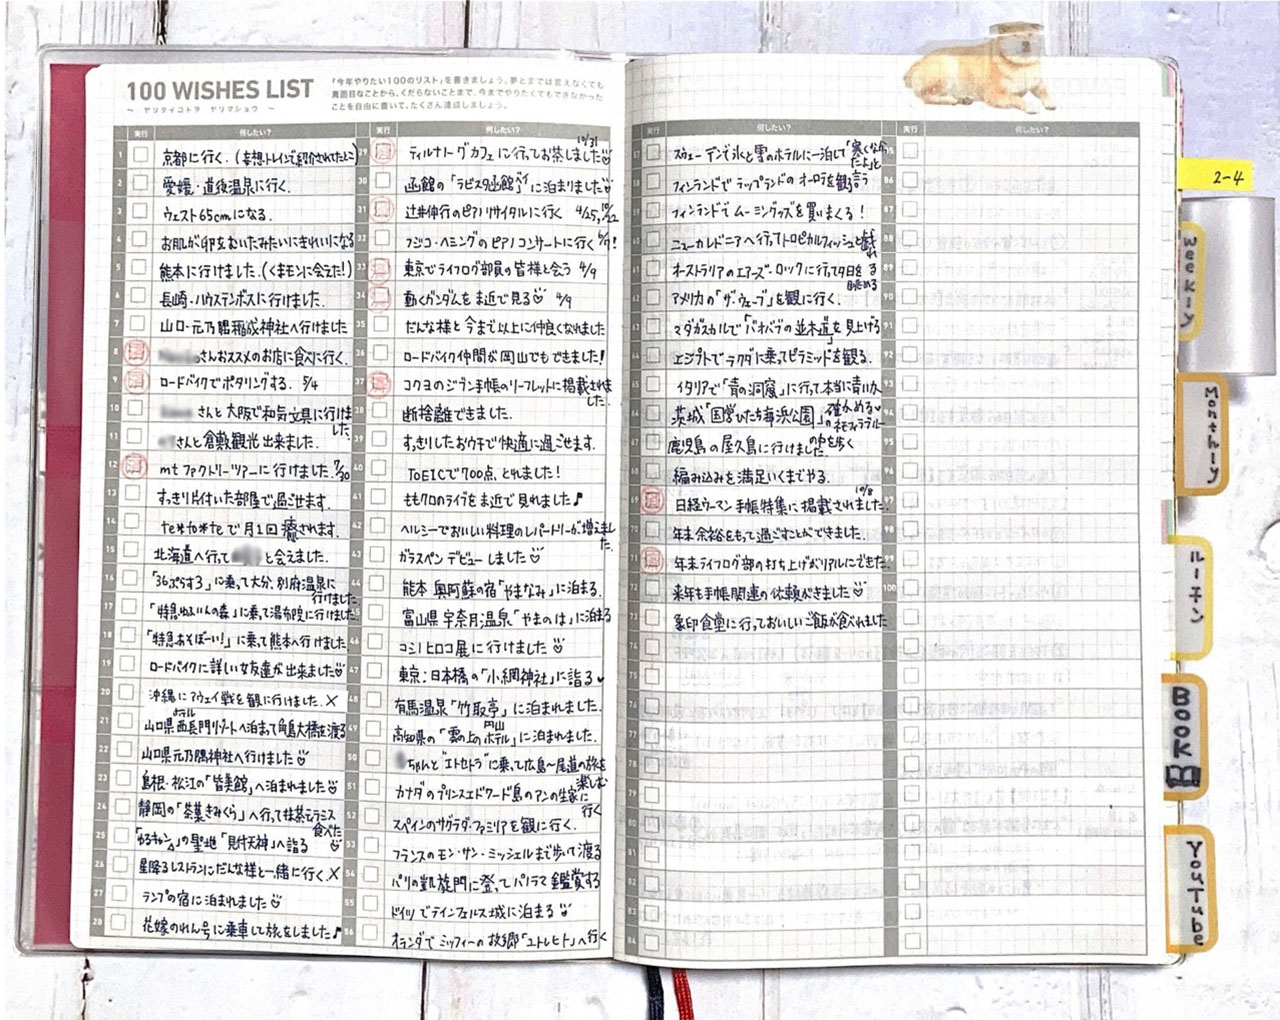 100 WISHES LIST
～ ヤリタイコトヲ ヤリマショウ ～
「今年やりたい100のリスト」を書きましょう。夢とまでは言えなくても
真面目なことから、くだらないことまで、今までやりたくてもできなかった
ことを自由に書いて、たくさん達成しましょう。
実行 何したい?
1 京都に行く。(妄想トレインで紹介されてたとこ)
2 愛媛・道後温泉に行く。
3 ウェスト65cmになる。
4 お肌が卵をむいたみたいにきれいになる
5 熊本に行けました。(くまモンに会えた!)
6 長崎・ハウステンボスに行けました。
7 山口・元乃隅稲成神社へ行けました
8 さんおススメのお店に食べに行く。
9 ロードバイクでポタリングする。5/4
10 さんと大阪で和気文具に行けました。
11 さんと倉敷観光出来ました。
12 mtファクトリーツアーに行けました。7/30
13 すっきり片付いた部屋で過ごせます。
14 te*to*teで月1回癒されます。
15 北海道へ行って と会えました。
16 「36ぷらす3」に乗って大分、別府温泉に行けました
17 「特急ゆふいんの森」に乗って湯布院に行けました
18 「特急あそぼーい!」に乗って熊本へ行けました
19 ロードバイクに詳しい女友達が出来ました
20 沖縄にアウェイ戦を観に行けました。×
21 山口県西長門リゾートホテルへ泊まって角島大橋を渡る
22 山口県元乃隅神社へ行けました
23 島根・松江の「皆美館」へ泊まれました
24 静岡の「茶菓きみくら」へ行って抹茶ティラミス食べた
25 「ゆるキャン△」の聖地「見付天神」へ詣る
26 星降るレストランにだんな様と一緒に行く×
27 ランプの宿に泊まれました
28 花嫁のれん号に乗車して旅をしました♪
実行 何したい?
29 ティルナノーグカフェに行ってお茶しました 10/31
30 函館の「ラビスタ函館ベイ」に泊まりました
31 辻井伸行のピアノリサイタルに行く 4/25, 10/22
32 フジコ・ヘミングのピアノコンサートに行く !
33 東京でライフログ部員の皆様と会う 4/9
34 動くガンダムを間近で見る 4/9
35 だんな様と今まで以上に仲良くなれました
36 ロードバイク仲間が岡山でもできました!
37 コクヨのジブン手帳のリーフレットに掲載されました。
38 断捨離できました。
39 すっきりしたおウチで快適に過ごせます。
40 TOEICで700点、とれました!
41 ももクロのライブを間近で見れました♪
42 ヘルシーでおいしい料理のレパートリーが増えました。
43 ガラスペンデビューしました
44 熊本 奥阿蘇の宿「やまなみ」に泊まる。
45 富山県宇奈月温泉「やまのは」に泊まる
46 コシノヒロコ展に行けました
47 東京:日本橋の「小網神社」に詣る
48 有馬温泉「竹取亭」に泊まれました。
49 高知県の「雲の上のホテル」に泊まれました。
50 ちゃんと"エトセトラ"に乗って広島〜尾道の旅を楽しむ
51 カナダのプリンスエドワード島のアンの生家に行く
52 スペインのサグラダ・ファミリアを観に行く。
53 フランスのモン・サン・ミッシェルまで歩いて渡る
54 パリの凱旋門に登ってパノラマを鑑賞する
55 ドイツでラインフェルス城に泊まる
56 オランダでミッフィーの故郷「ユトレヒト」へ行く
何したい?
57 スウェーデンで氷と雪のホテルに一泊して「寒くな〜い だよ」と言う
58 フィンランドでラップランドのオーロラを観る
59 フィンランドでムーミングッズを買いまくる!
60 ニューカレドニアへ行ってトロピカルフィッシュと戯れる
61 オーストラリアのエアーズ・ロックに行って夕日を眺める
62 アメリカの「ザ・ウェーブ」を観に行く。
63 マダガスカルで「バオバブの並木道」を見上げる
64 エジプトでラクダに乗ってピラミッドを観る。
65 イタリアで「青の洞窟」に行って本当に青いか確かめる
66 茨城「国営ひたち海浜公園」のネモフィラブルー
67 鹿児島の屋久島に行けました。
68 編み込みを満足いくまでやる。
69 日経ウーマン手帳特集に掲載されました。10/8
70 年末余裕をもって過ごすことができました。
71 年末ライフログ部の打ち上げがリアルにできた
72 来年も手帳関連の依頼がきました
73 象印食堂に行っておいしいご飯が食べれました
74
75
76
77
78
79
80
81
82
83
84
実行 何したい?
85
86
87
88
89
90
91
92
93
94
95
96
97
98
99
100
2-4
Weekly
Monthly
ルーチン
BOOK
YouTube